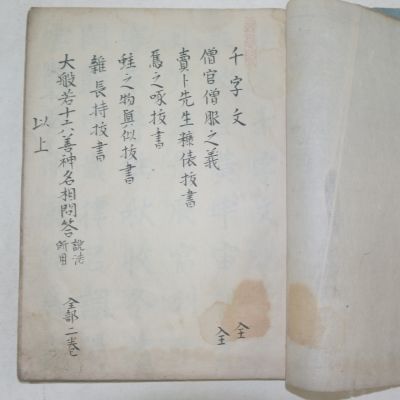 千字文 全
僧官僧服之義 全
賣卜先生糠俵抜書
鳥之啄抜書
蛙之物真似抜書
雑長持抜書
大般若十六善神名相問答 説法所用 全部二巻
以上